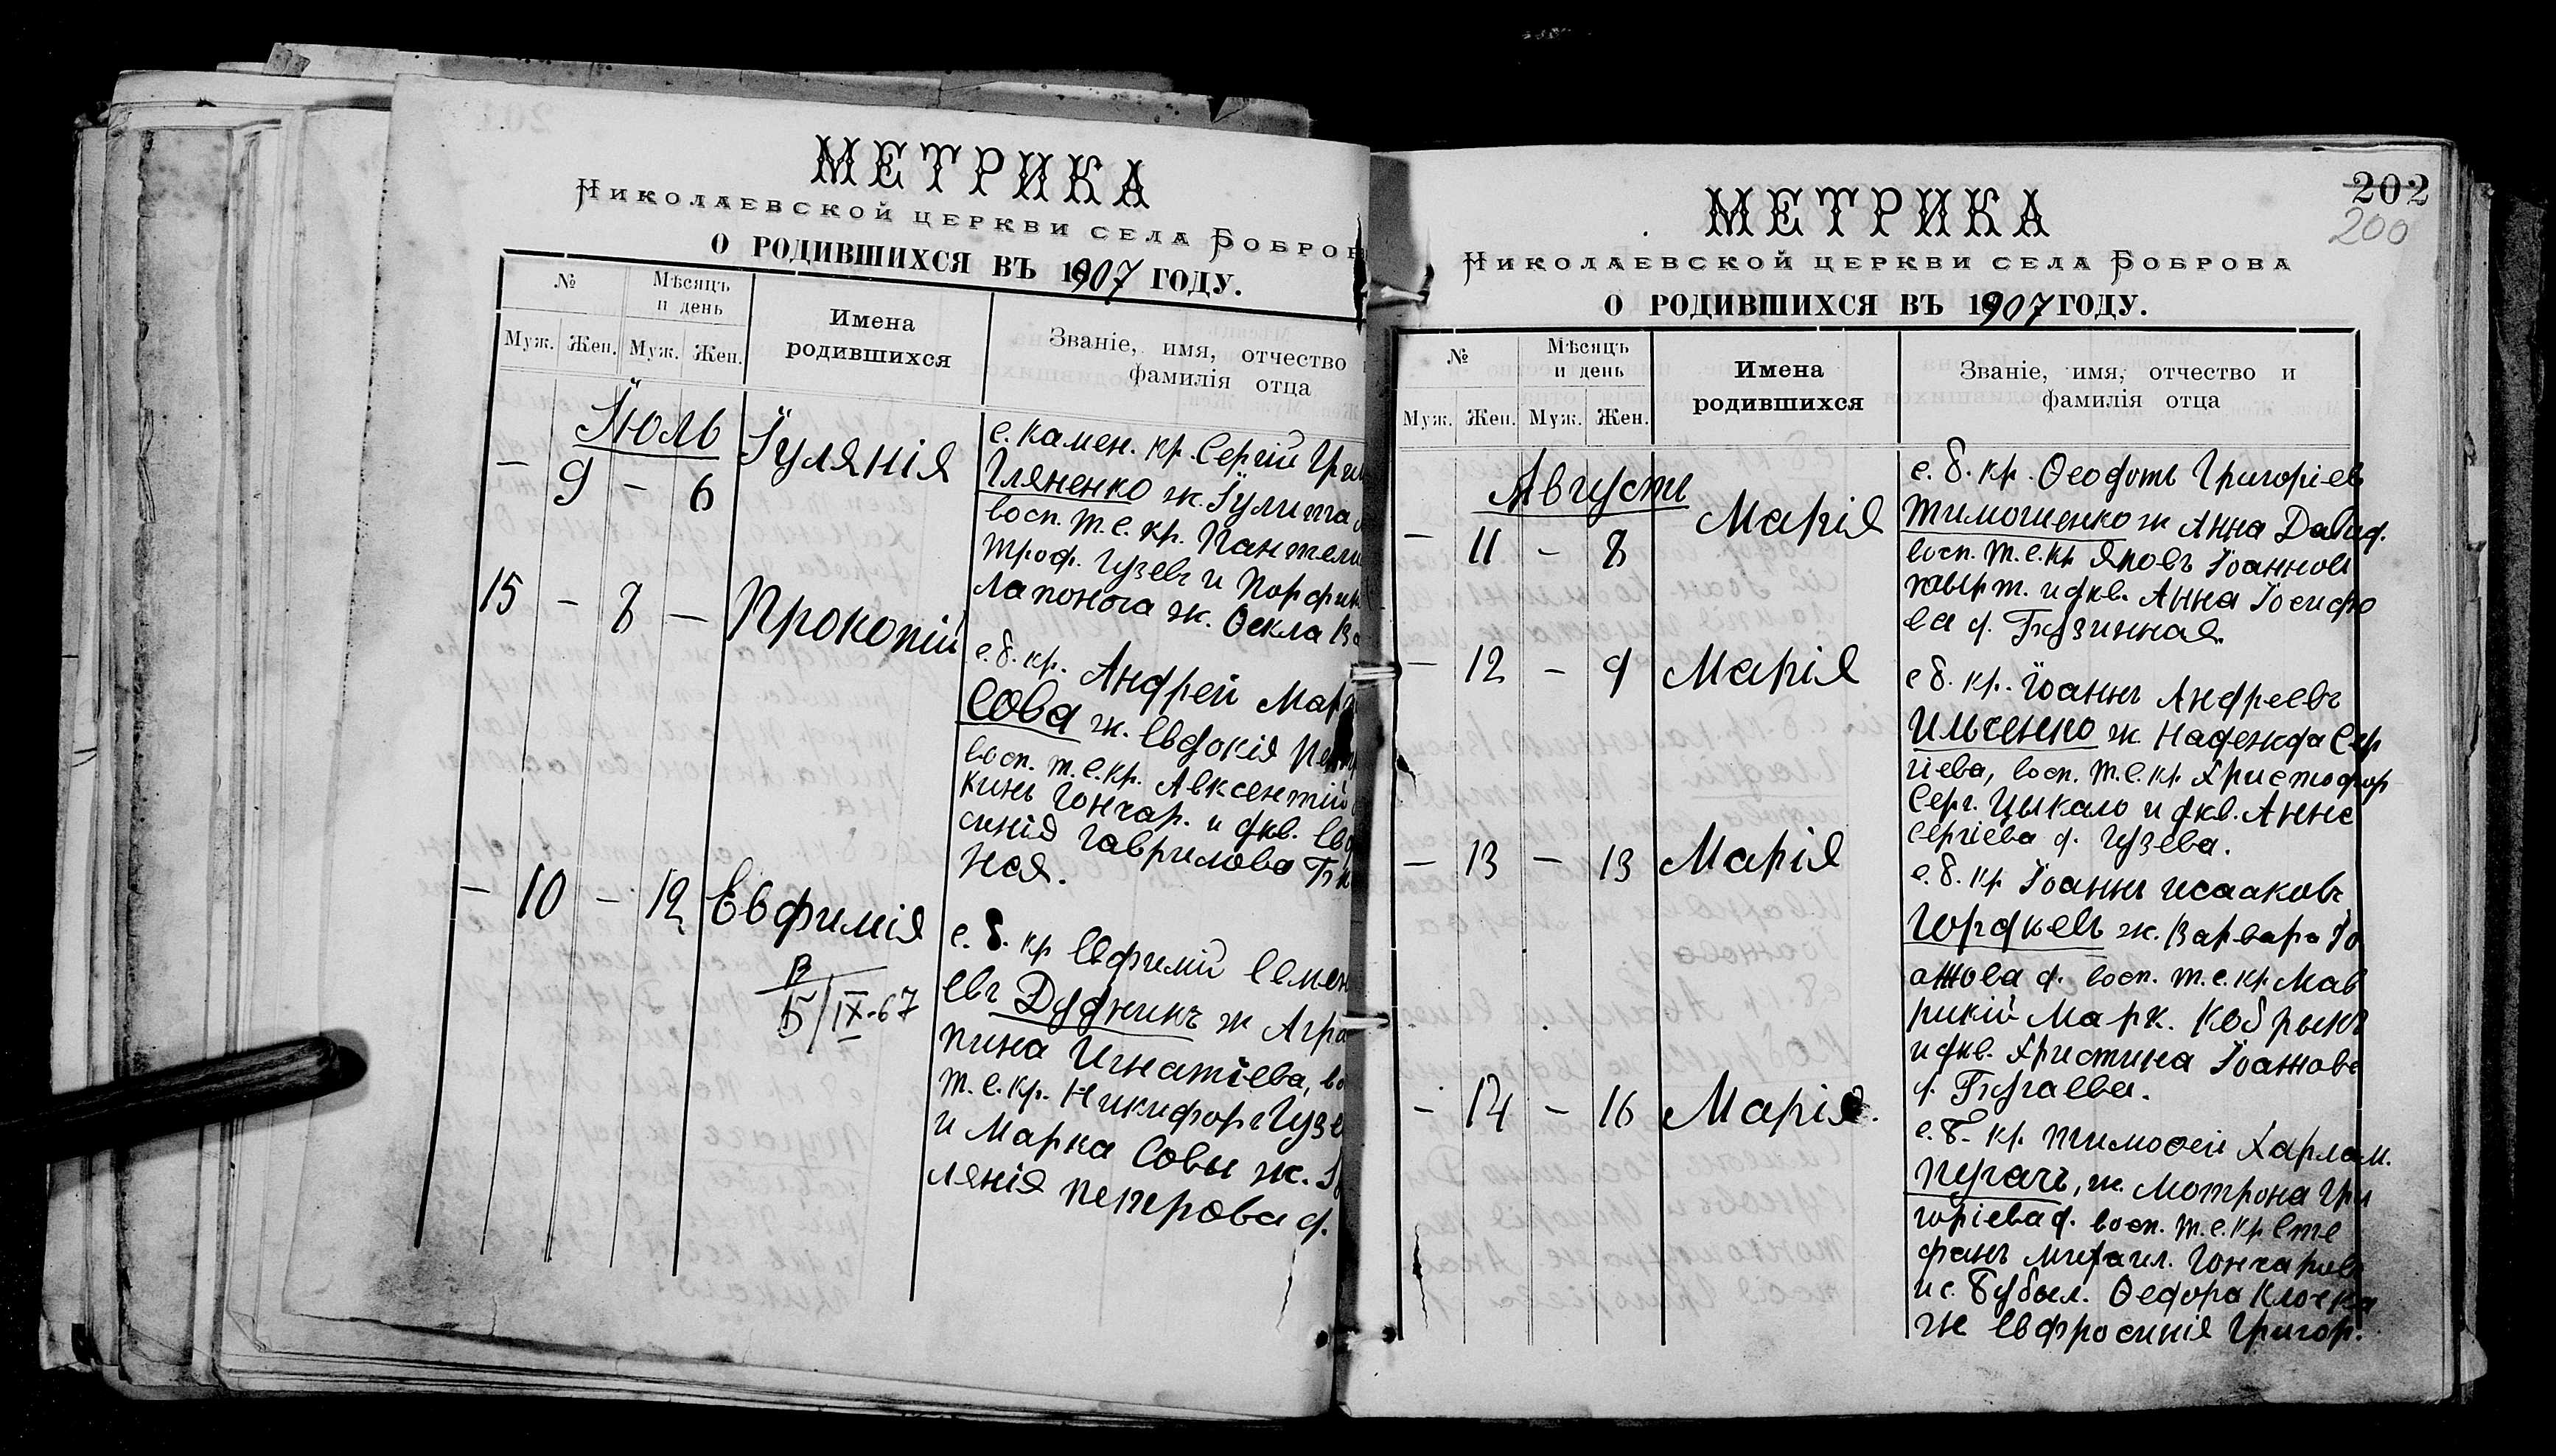 МЕТРИКА
НИКОЛАЕВСКОЙ ЦЕРКВИ СЕЛА БОБРОВ
О РОДИВШИХСЯ ВЪ 1907 ГОДУ.
№ Мѣсяцъ и день Имена родившихся Званіе, имя, отчество фамилія отца
Муж. Жен. Муж. Жен.
Іюль
— 9 — 6 Іулянія
с. камен. кр. Сергій Григ
Гляненко ж. Іулита
восп. т. с. кр. Пантели
Троф. Гузевъ и Порфир
Лапонога ж. Ѳекла Ва
15 — 8 — Прокопій
с. б. кр. Андрей Мар
Сова ж. Евдокія Пет
восп. т. с. кр. Авксентій
кинъ Гончар. и дкв. Евф
синія Гаврилова
ная.
— 10 — 12 Евфимія
В
15/IX-67
с. б. кр Евфимій Семен
евъ Дудникъ ж Агра
пина Игнатіева, во
т. с. кр. Никифоръ Гузе
и Марка Совы ж. Іу
лянія Петрова д.
202
200
МЕТРИКА
НИКОЛАЕВСКОЙ ЦЕРКВИ СЕЛА БОБРОВА
О РОДИВШИХСЯ ВЪ 1907 ГОДУ.
№ Мѣсяцъ и день Имена родившихся Званіе, имя, отчество и фамилія отца
Муж. Жен. Муж. Жен.
Августъ
— 11 — 8 Марія
с. б. кр. Ѳеодотъ Григоріев
Тимошенко ж Анна Давид.
восп. т. с. кр Яковъ Іоаннов
и дкв. Анна Іосифо
ва д.
— 12 — 9 Марія
с б. кр. Іоаннъ Андреевъ
Ильченко ж. Надежда Сер
гіева, восп. т. с. кр Христофор
Серг. Цыкало и дкв. Анна
Сергіева д. Гузева.
— 13 — 13 Марія
с. б. кр Іоаннъ Исааковъ
Гордкевъ ж. Варвара Іо
анова д. восп. т. с. кр. Мав
рикій Марк. Кобрыкъ
и дкв. Христина Іоаннова
д.
— 14 — 16 Марія.
с. б. кр. Тимоѳей Харлам.
Пугачъ, ж. Мотрона Гри
горіева д. восп. т. с. кр Сте
фанъ Михаил. Гончаровъ
и с. Бубыл. Ѳедора Клочка
ж Евфросинія Григор.